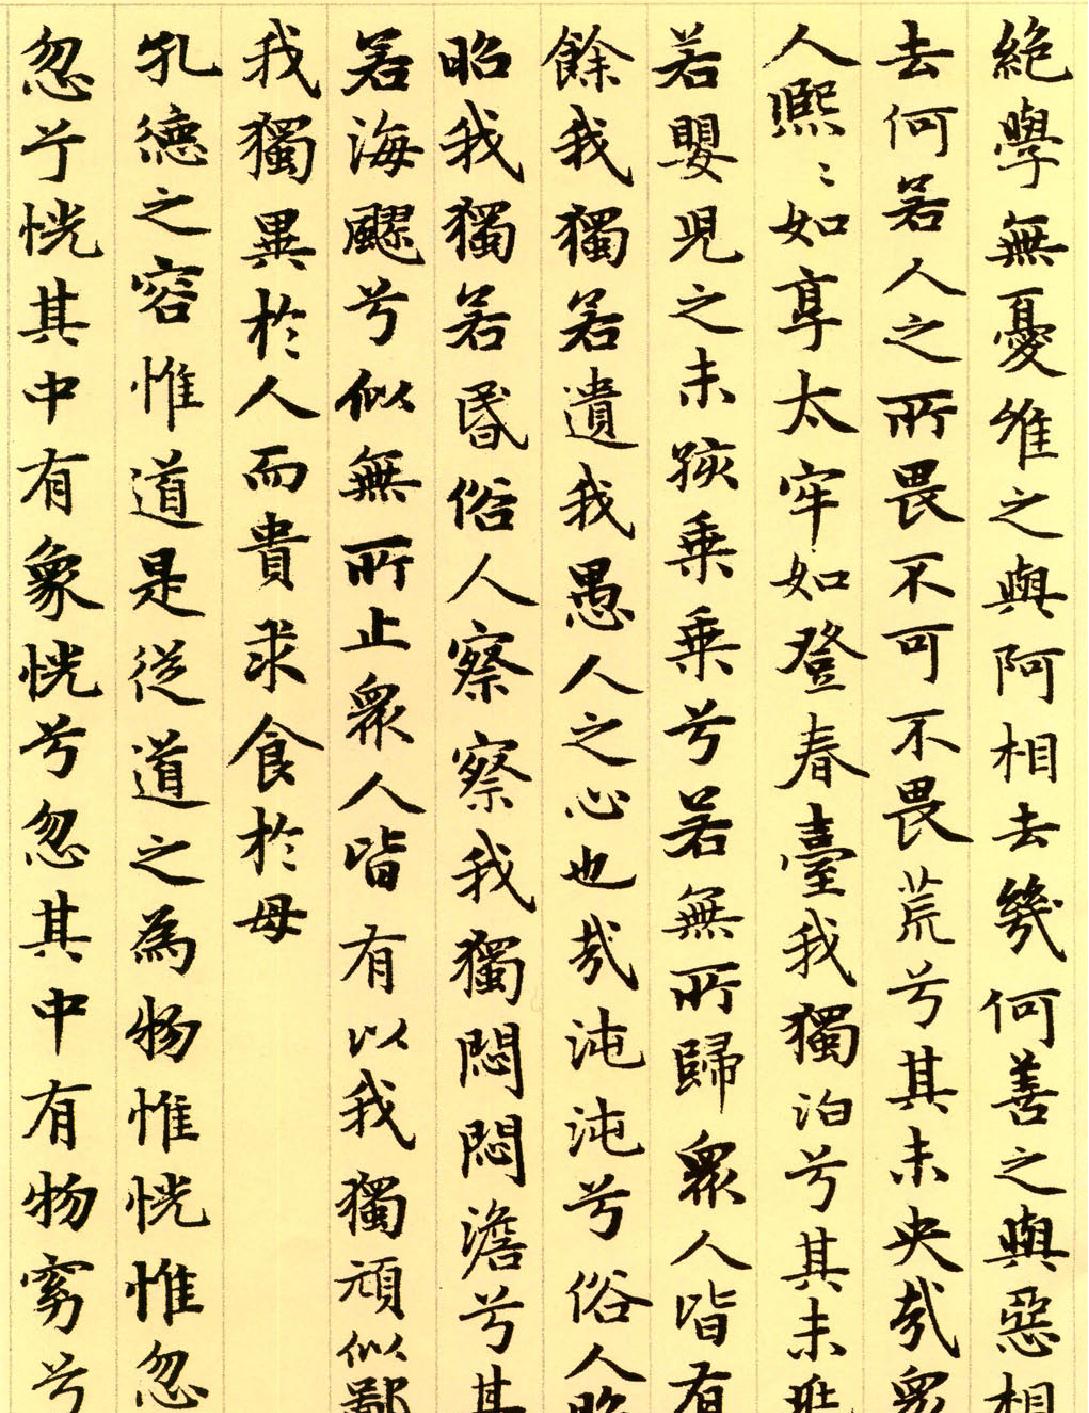 絶學無憂唯之與阿相去幾何善之與惡相
去何若人之所畏不可不畏荒兮其未央哉眾
人熙〻如享太牢如登春臺我獨泊兮其未兆
若嬰兒之未孩乗乗兮若無所歸眾人皆有
餘我獨若遺我愚人之心也哉沌沌兮俗人昭
昭我獨若昬俗人察察我獨悶悶澹兮其
若海飂兮似無所止眾人皆有以我獨頑似鄙
我獨異於人而貴求食於母
孔德之容惟道是従道之為物惟恍惟忽
忽兮恍其中有象恍兮忽其中有物窈兮